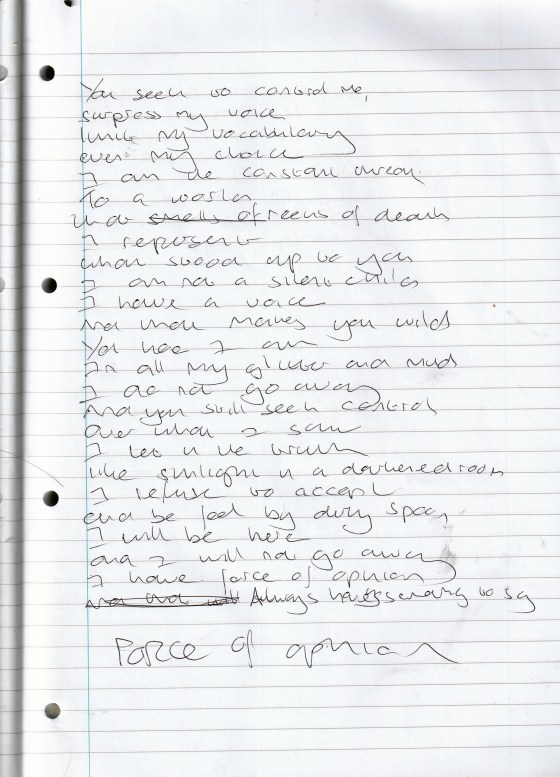 You seek to control me,
surpress my voice
limit my vocabulary
even my choice
I am the constant threat
To a world
that smells of reeks of death
I represent
what stood up to you
I am not a silent child
I have a voice
And that makes you wild
You hate I am
In all my glitter and mud
I do not go away
And you still seek control
Over what I say
I let in the truth
like sunlight in a darkened room
I refuse to accept
and be fed by dirty spoon
I will be here
and I will not go away
I have force of opinion
Always have something to say
Force of opinion